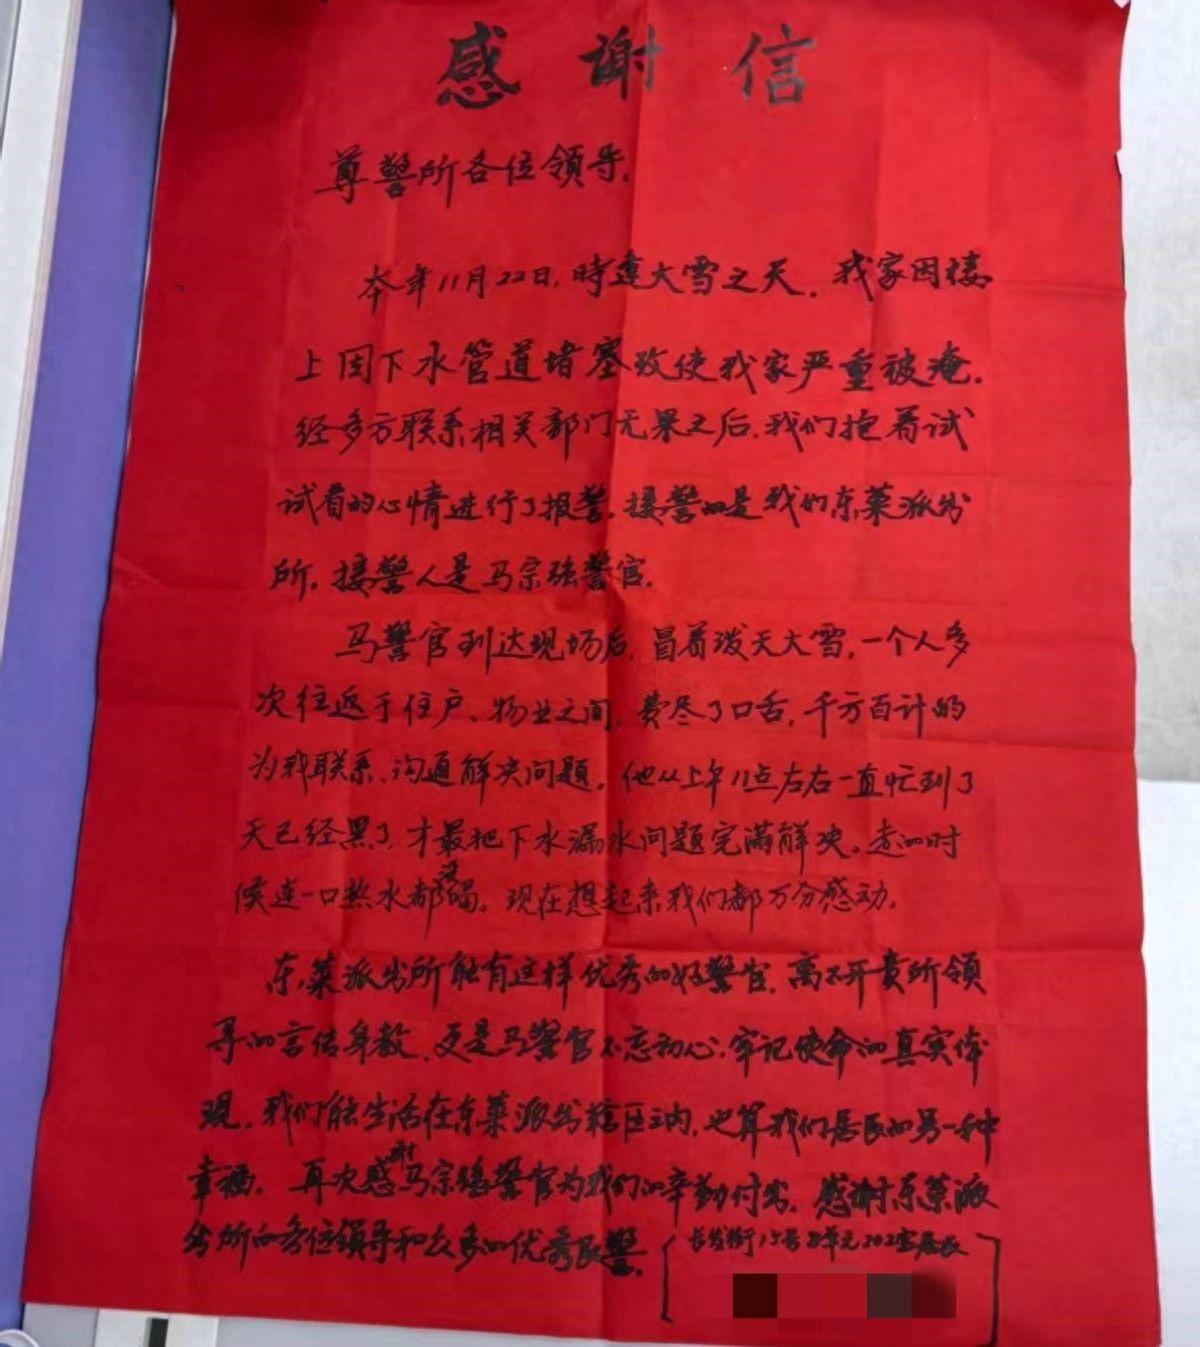 感谢信
尊警所各位领导.
本年11月22日,時遭大雪之天.我家因楼
上因下水管道堵塞致使我家严重被淹.
经多方联系相关部门无果之后.我们抱着试
试看的心情进行了报警.接警的是我们东莱派出
所.接警人是马宗强警官.
马警官到达现场后,冒着泼天大雪,一个人多
次往返于住户、物业之间,费尽了口舌,千方百计的
为我联系、沟通解决问题。他从上午11点左右一直忙到了
天已经黑了,才最把下水漏水问题完满解决。走的时
候连一口热水都没喝。现在想起来我们都万分感动.
东莱派出所能有这样优秀的好警官,离不开贵所领
导的言传身教,更是马警官不忘初心,牢记使命的真实体
现,我们能生活在东莱派出辖区之内,也算我们居民的另一种
幸福.再次感谢马宗强警官为我们的辛勤付出.感谢东莱派
出所的各位领导和众多的优秀民警.
长发街15号2单元202室居民